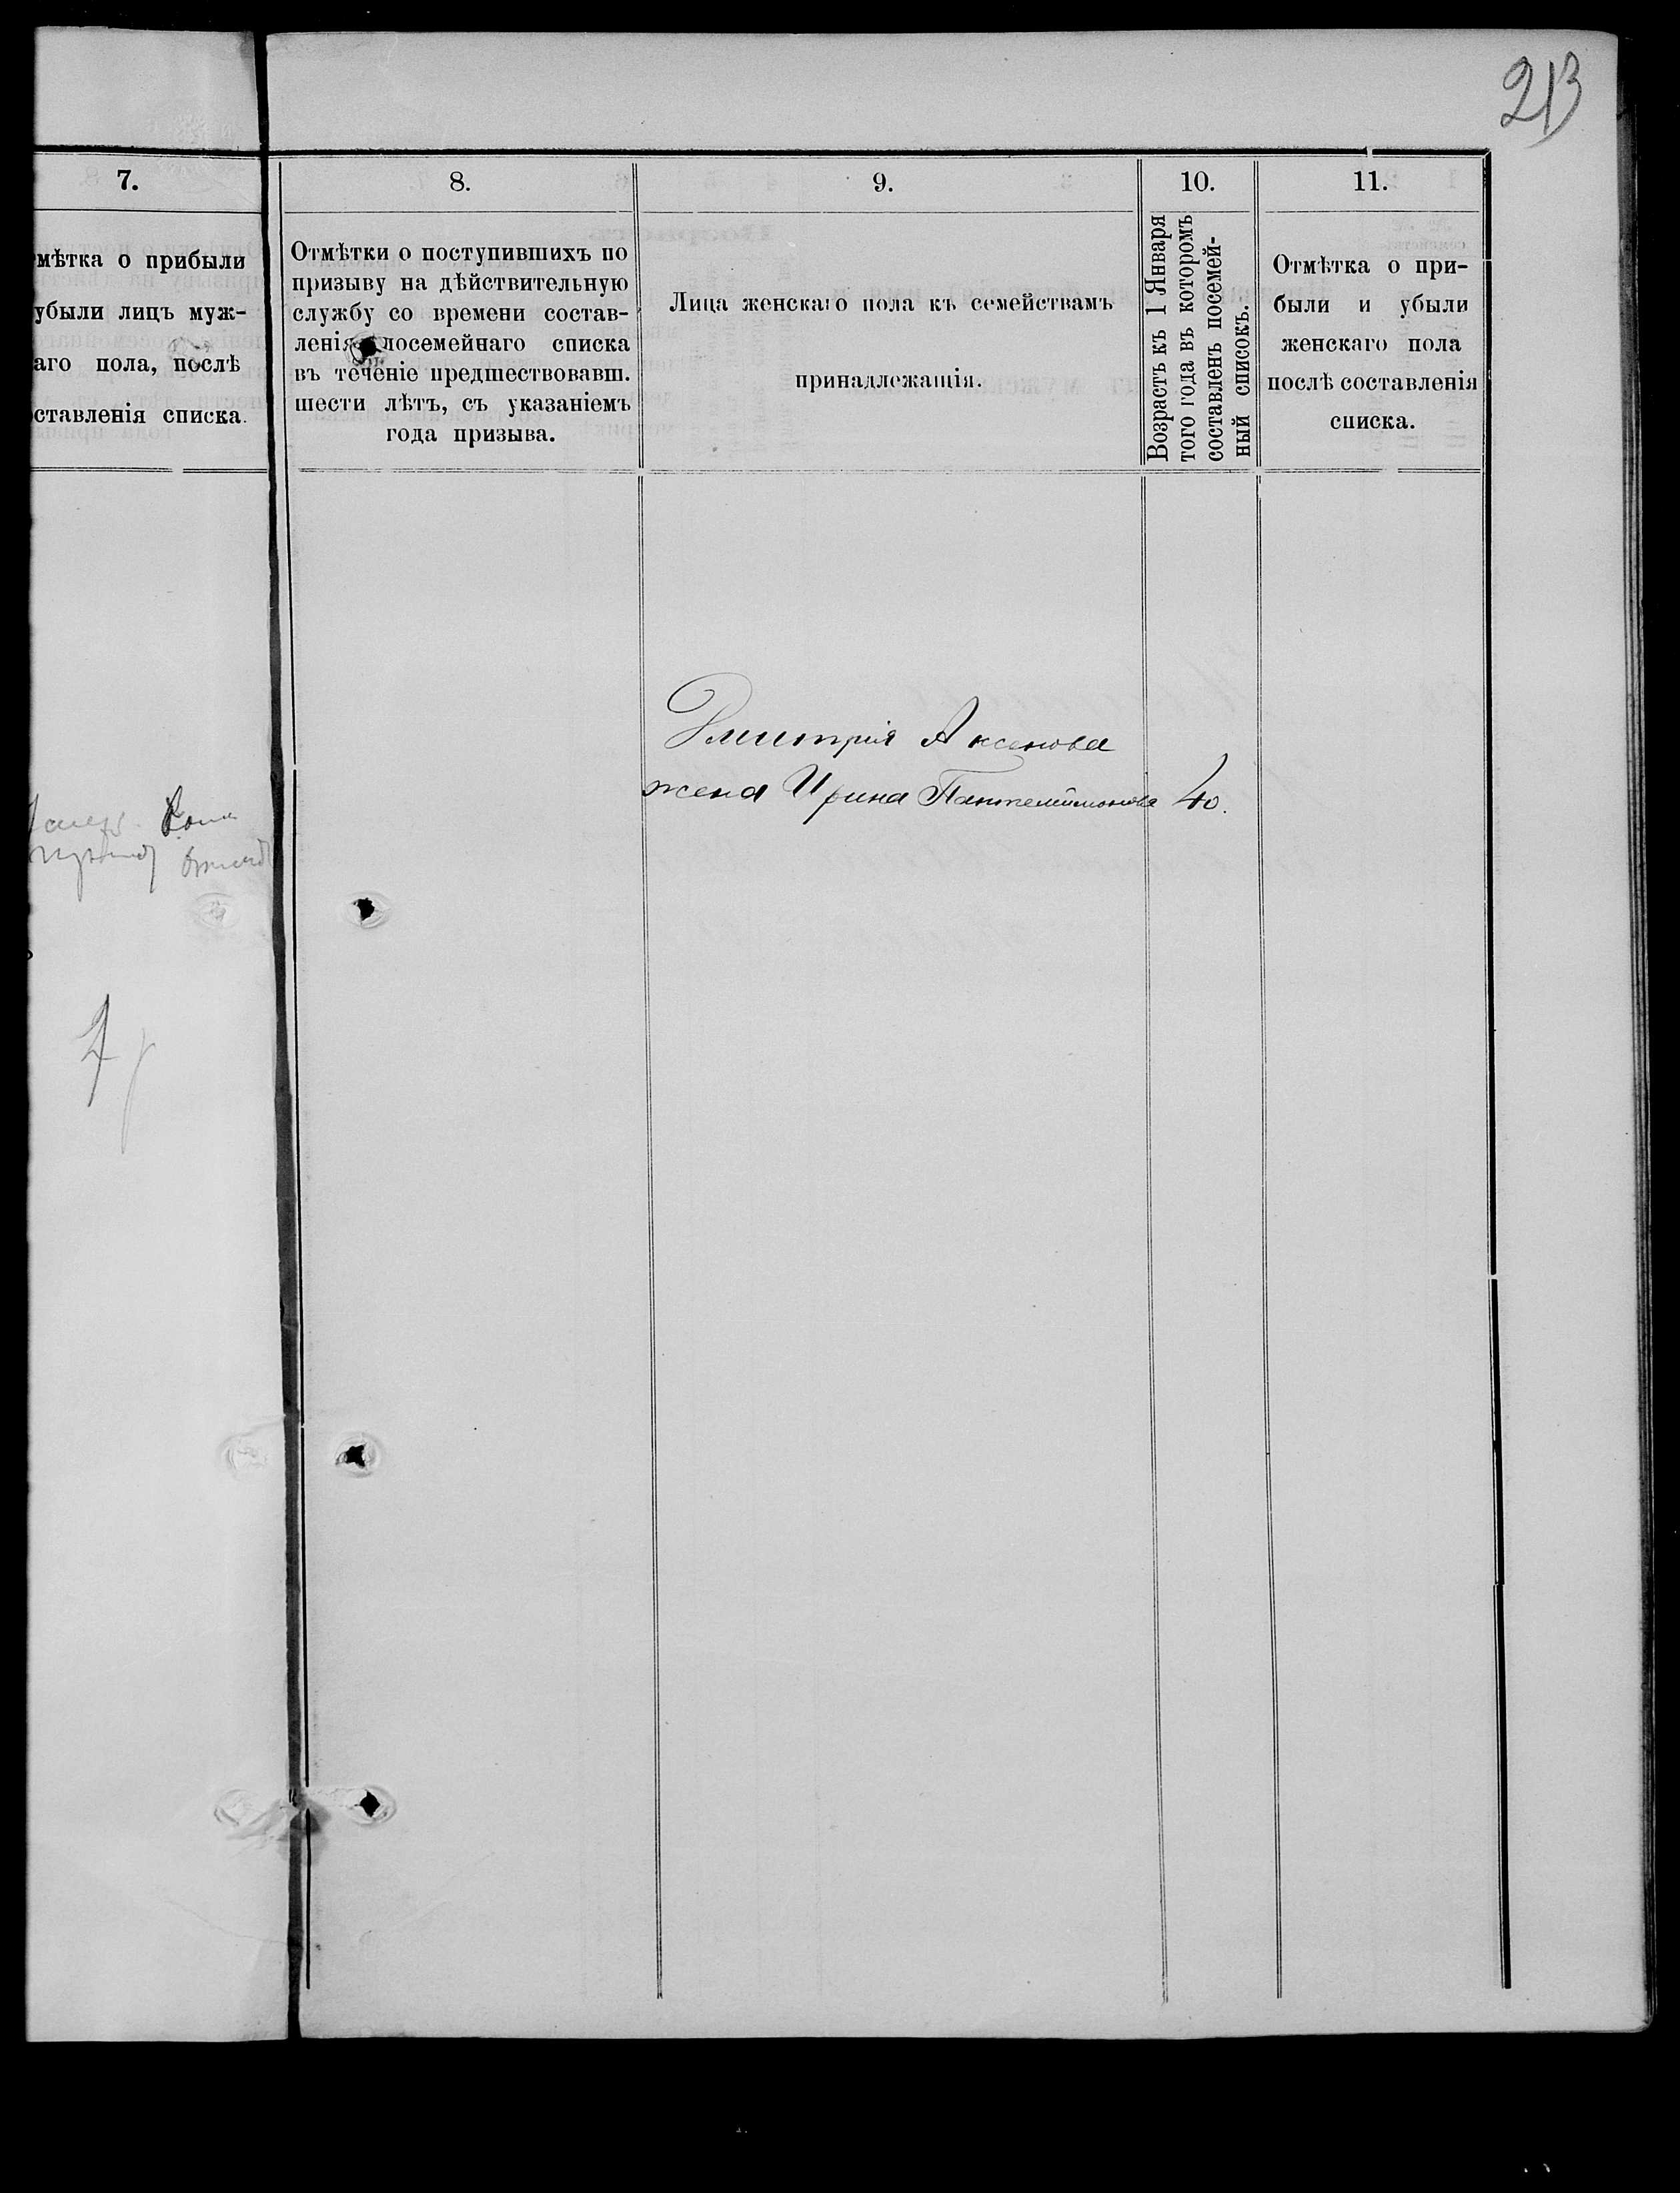 213
7.
мѣтка о прибыли
убыли лицъ муж-
аго пола, послѣ
оставленія списка.
8.
Отмѣтки о поступившихъ по
призыву на дѣйствительную
службу со времени состав-
ленія посемейнаго списка
въ теченіе предшествовавш.
шести лѣтъ, съ указаніемъ
года призыва.
9.
Лица женскаго пола къ семействамъ
принадлежащія.
10.
Возрастъ къ 1 Января
того года въ которомъ
составленъ посемей-
ный списокъ.
11.
Отмѣтка о при-
были и убыли
женскаго пола
послѣ составленія
списка.
Дмитрія Аксенова
жена Ирина Пантелеймонова 40.